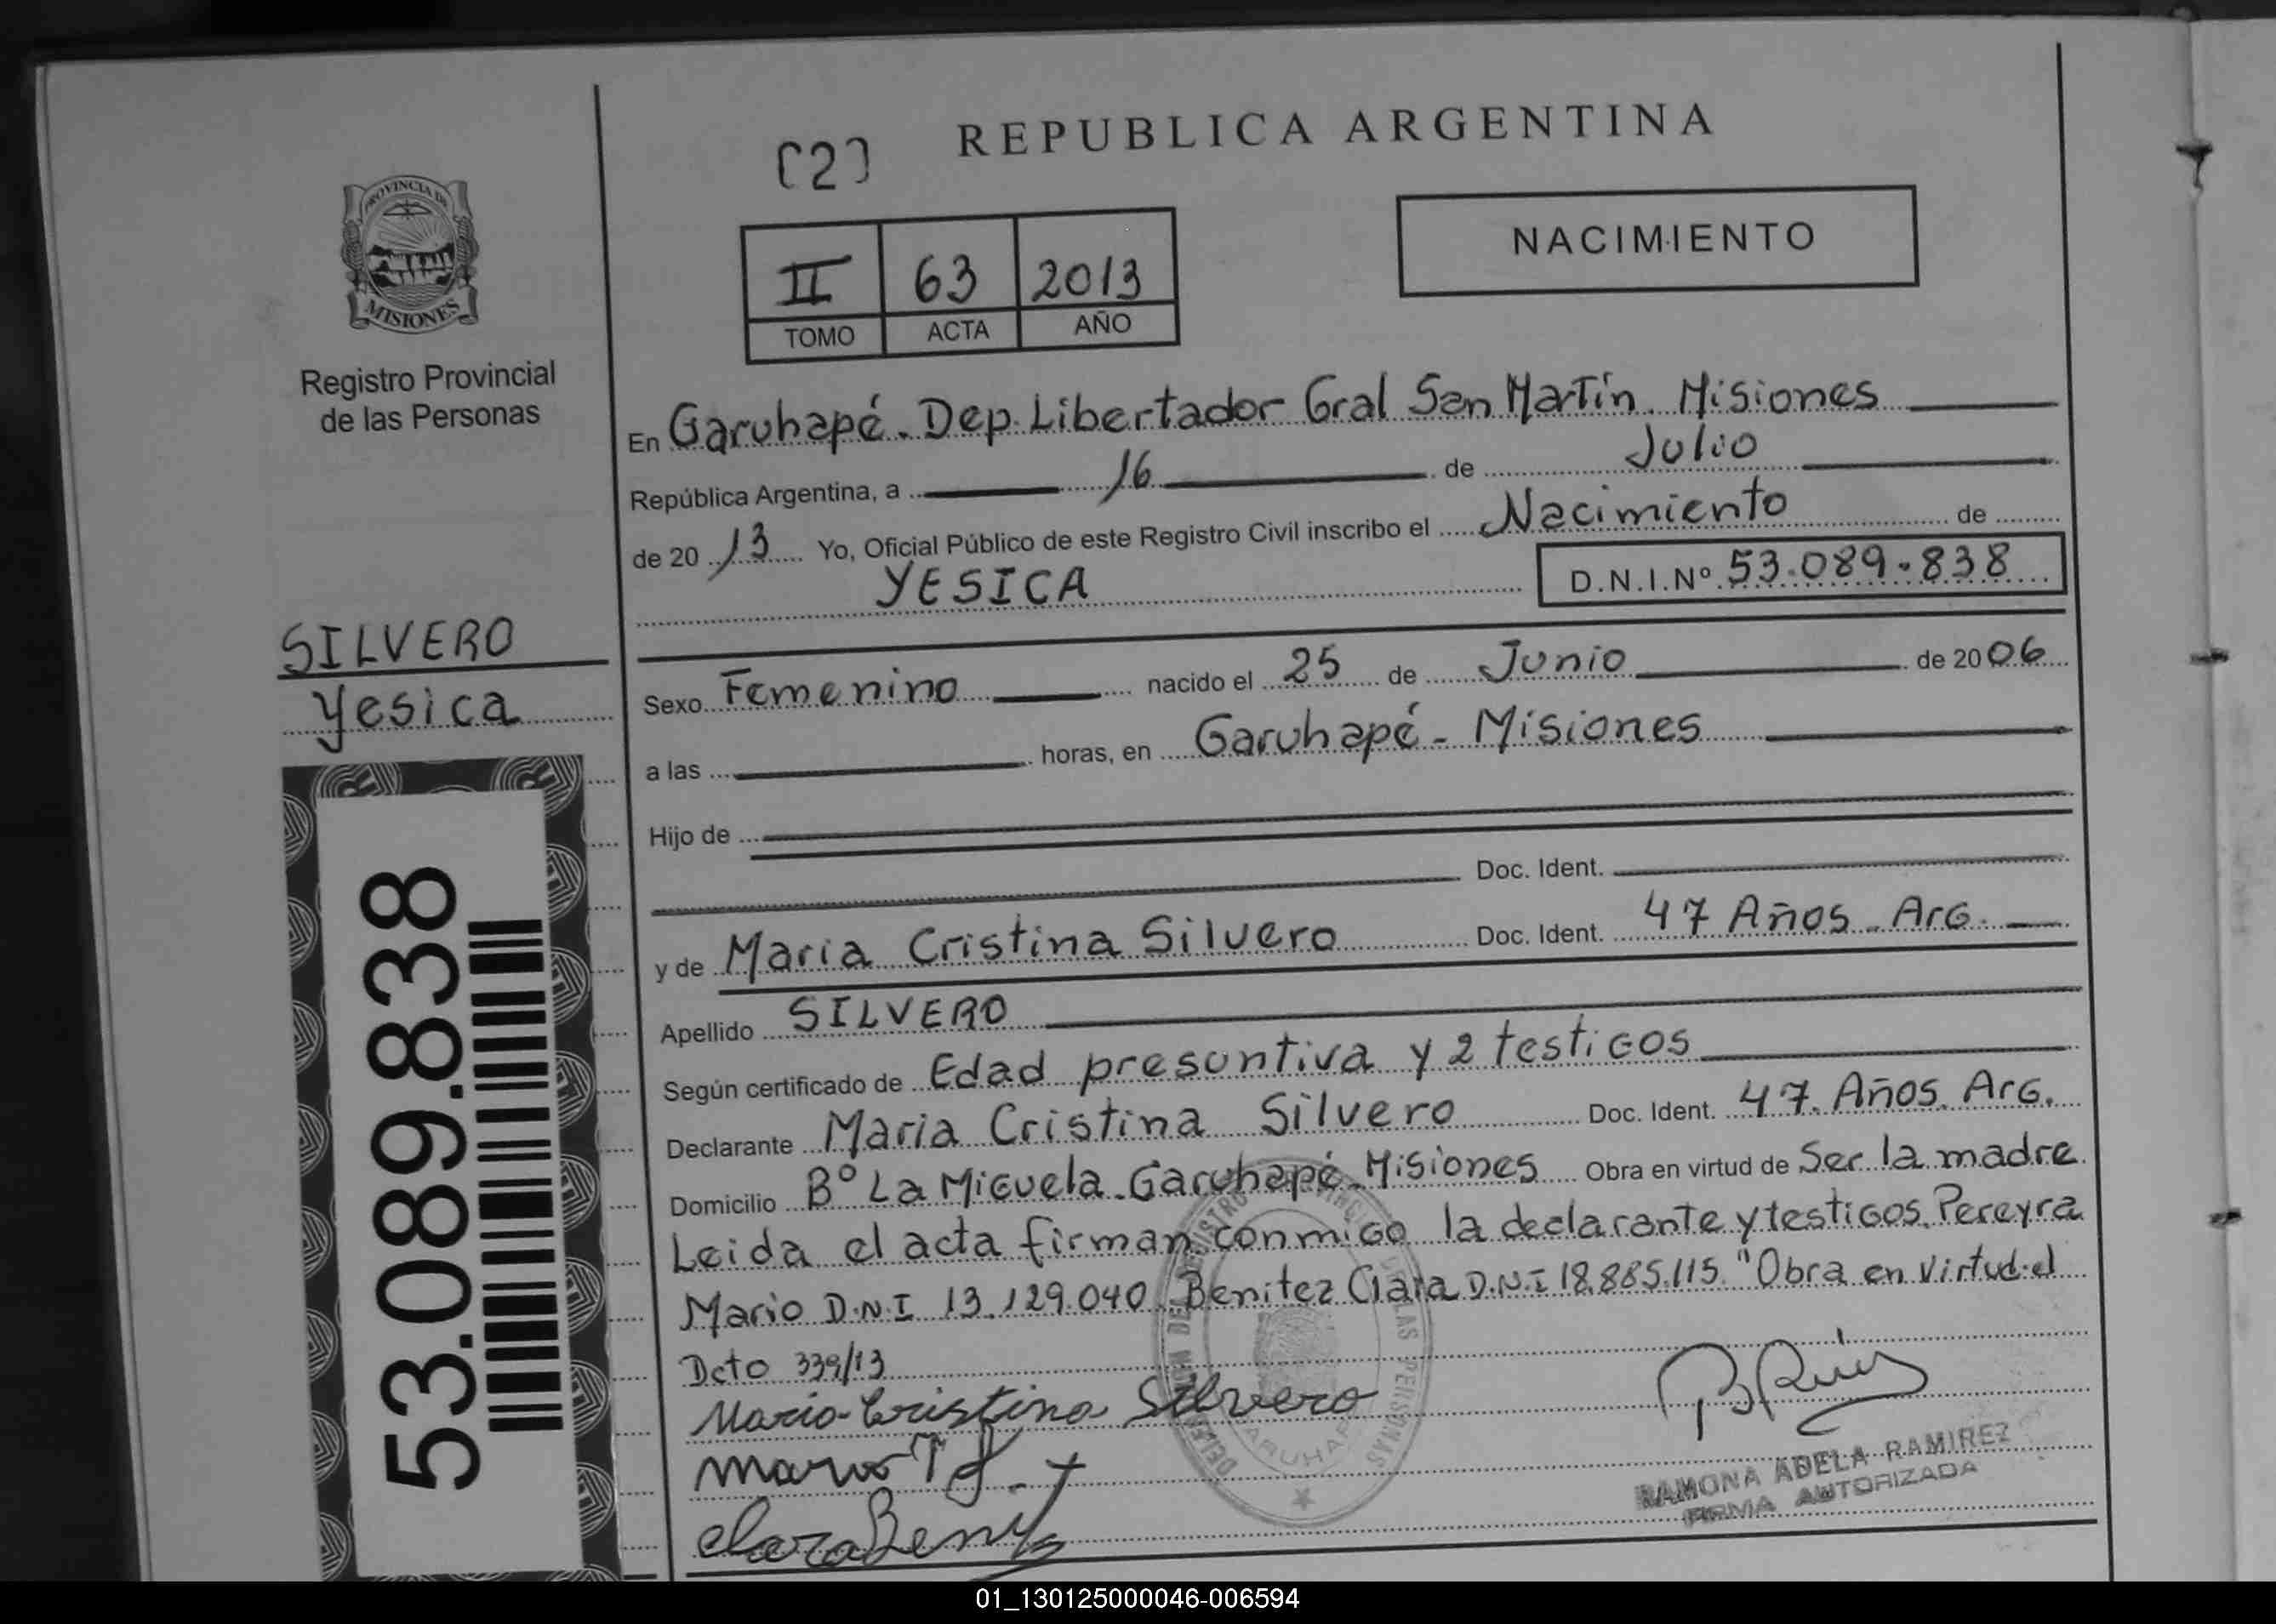 [2] REPUBLICA ARGENTINA
PROVINCIA DE
MISIONES
NACIMIENTO
II 63 2013
TOMO ACTA AÑO
Registro Provincial
de las Personas
En Garuhapé. Dep. Libertador Gral San Martín. Misiones
República Argentina, a 16 de Julio
de 20 13 Yo, Oficial Público de este Registro Civil inscribo el Nacimiento de
YESICA D.N.I.Nº 53.089.838
SILVERO
Yesica
Sexo Femenino nacido el 25 de Junio de 2006
a las horas, en Garuhapé - Misiones
Hijo de
Doc. Ident.
y de Maria Cristina Silvero Doc. Ident. 47 Años - Arg.
Apellido SILVERO
Según certificado de Edad presuntiva y 2 testigos
Declarante Maria Cristina Silvero Doc. Ident. 47 Años. Arg.
Domicilio Bº La Miguela. Garuhapé - Misiones Obra en virtud de Ser la madre
Leida el acta firman conmigo la declarante y testigos. Pereyra
Mario D.N.I 13.129.040. Benitez Clara D.N.I 18.885.115. "Obra en Virtud el
Dcto 339/13
Maria Cristina Silvero
Clara Benitez
RAMONA ADELA RAMIREZ
FIRMA AUTORIZADA
53.089.838
01_130125000046-006594